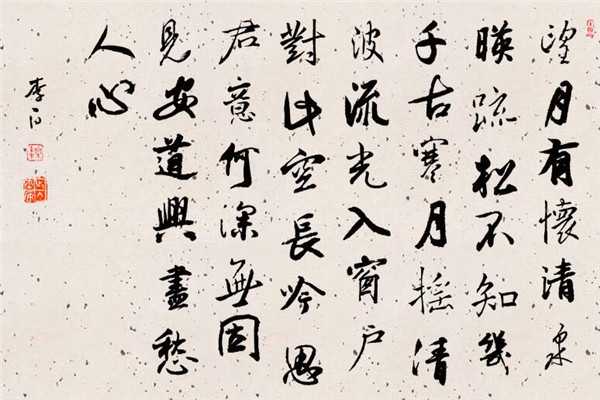 望月有懷清泉
暎疏松不知幾
千古寒月搖清
波流光入窗戶
對此空長吟思
君意何深無因
見安道興盡愁
人心
李白